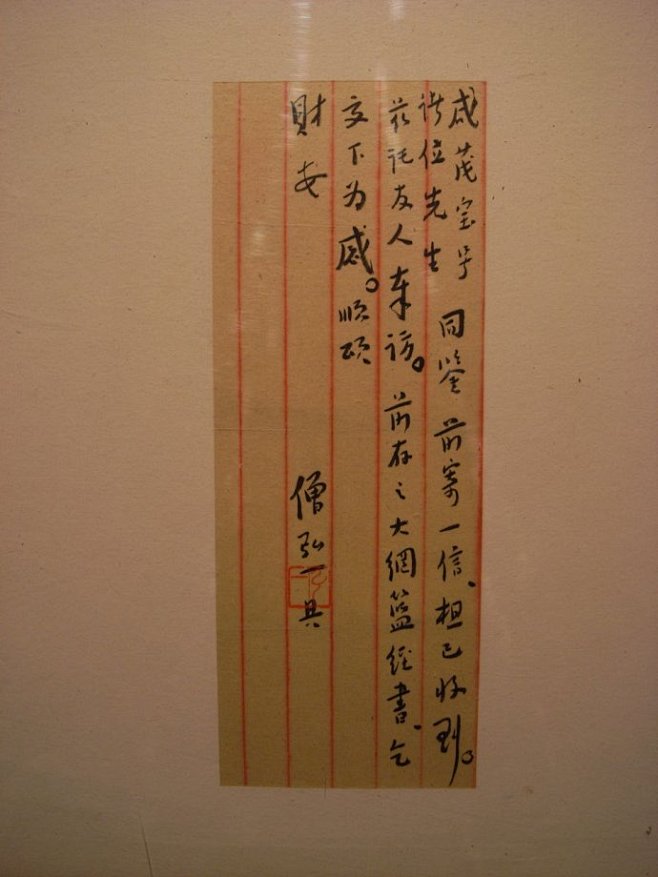 咸茂宝号
诸位先生
同鉴 前寄一信、想已收到。
兹託友人奉访。前存之大網籃经書、乞
交下为感。順頌
財安
僧弘一具